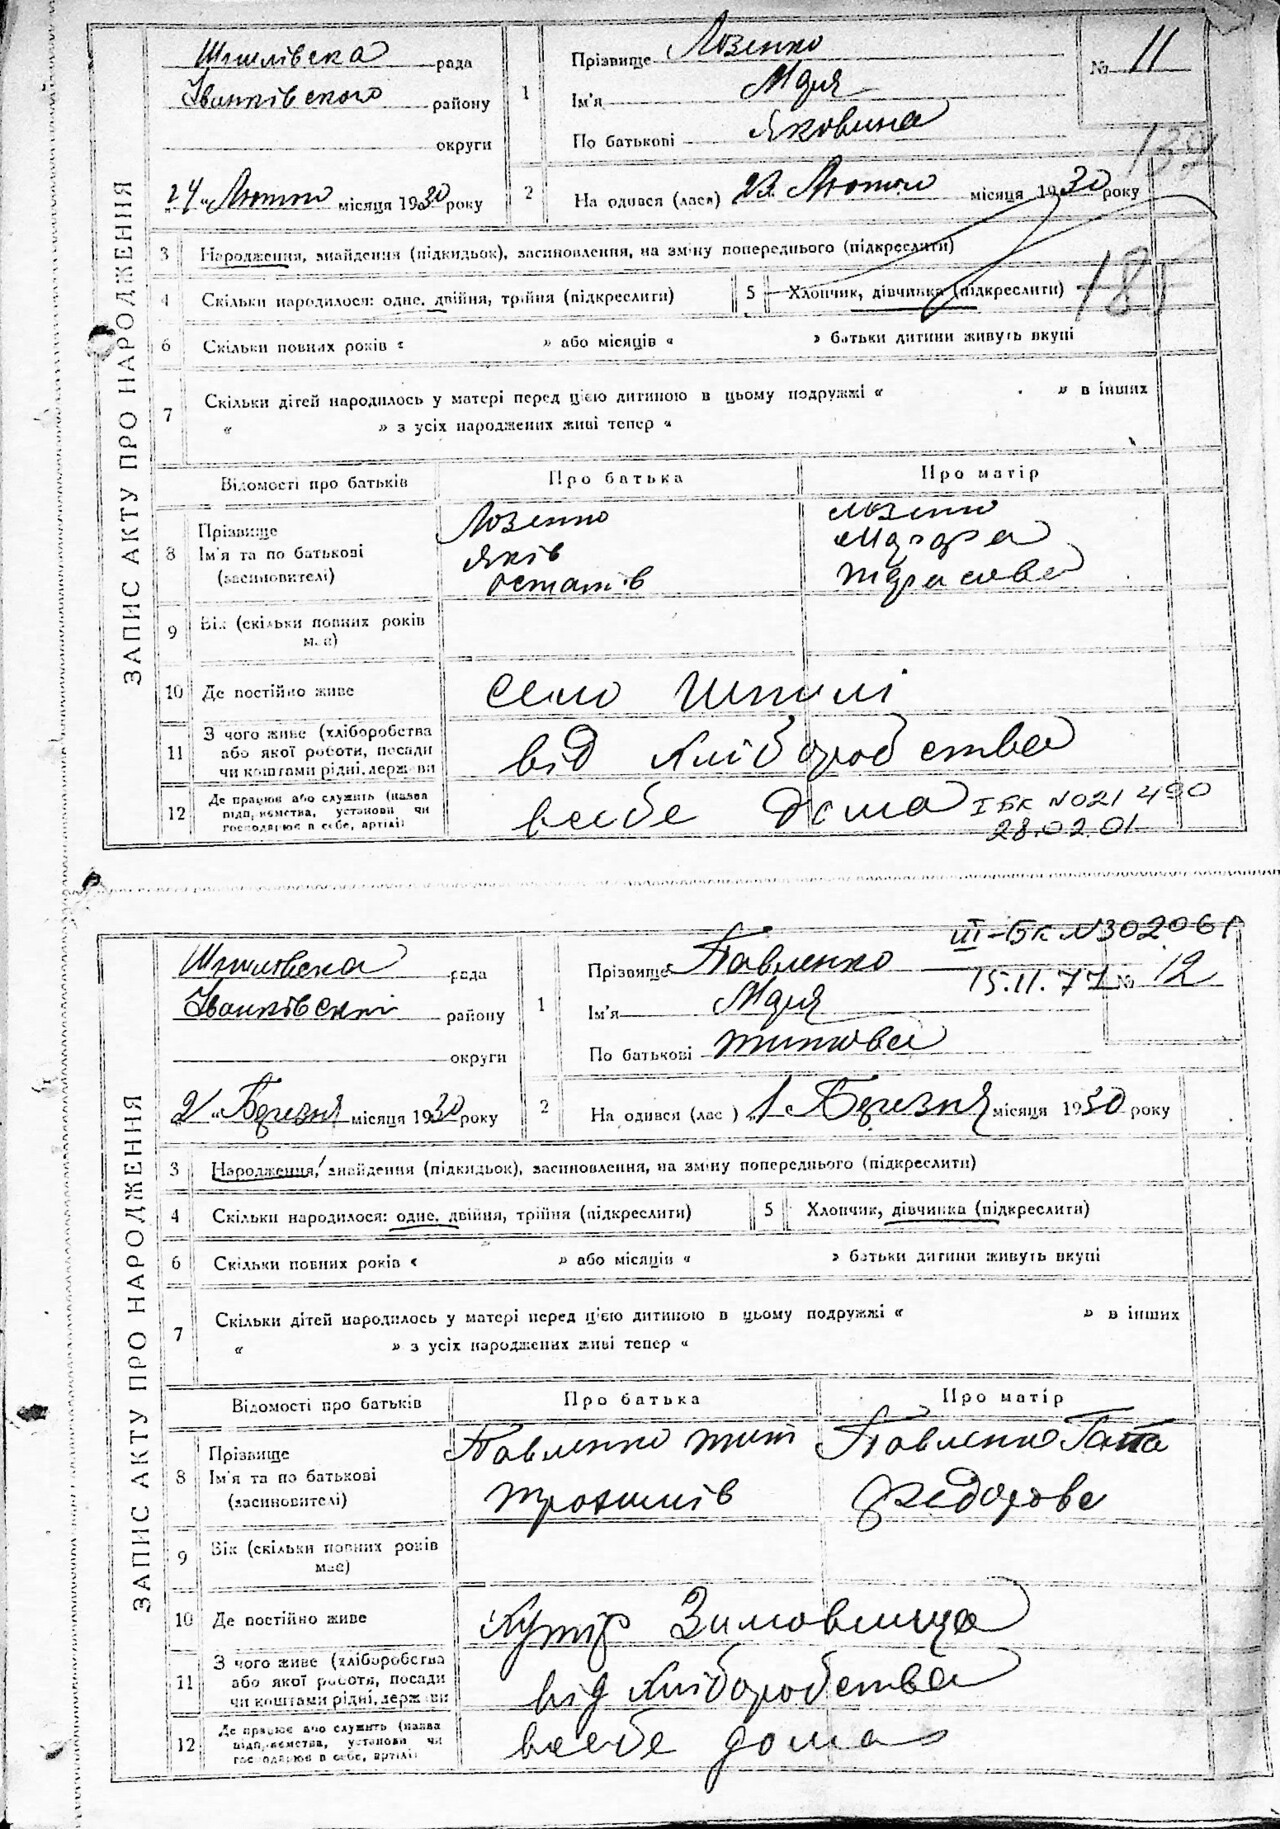 ЗАПИС АКТУ ПРО НАРОДЖЕННЯ
Шпилівска рада
Іванківського району
округи
24 Лютого місяця 1930 року
1 Прізвище Лозенко
Ім'я Марія
По батькові Яковина
№ 11
132
2 На одився (лася) 23 Лютого місяця 1930 року
3 Народження, знайдення (підкидьок), засиновлення, на зміну попереднього (підкреслити)
4 Скільки народилося: одне, двійня, трійня (підкреслити)
5 Хлопчик, дівчинка (підкреслити)
185
6 Скільки повних років « » або місяців « » батьки дитини живуть вкупі
7 Скільки дітей народилось у матері перед цією дитиною в цьому подружжі « » в інших
« » з усіх народжених живі тепер «
Відомості про батьків Про батька Про матір
8 Прізвище Ім'я та по батькові (засиновителі)
Лозенко Яків Остапів
Лозенко Марфа Тарасова
9 Вік (скільки повних років має)
10 Де постійно живе село Шпилі
11 З чого живе (хліборобства або якої роботи, посади чи коштами рідні, держави
від хліборобства
12 Де працює або служить (назва підприємства, установи чи господарює в себе, артілі)
всебе дома
І БК №021490
28.02.01
ЗАПИС АКТУ ПРО НАРОДЖЕННЯ
Шпилівска рада
Іванківский району
округи
2 Березня місяця 1930 року
ІІІ-БК №302061
15.11.77
1 Прізвище Павленко
Ім'я Марія
По батькові Титова
№ 12
2 На одився (лас ) 1 Березня місяця 1930 року
3 Народження, знайдення (підкидьок), засиновлення, на зміну попереднього (підкреслити)
4 Скільки народилося: одне, двійня, трійня (підкреслити)
5 Хлопчик, дівчинка (підкреслити)
6 Скільки повних років « » або місяців « » батьки дитини живуть вкупі
7 Скільки дітей народилось у матері перед цією дитиною в цьому подружжі « » в інших
« » з усіх народжених живі тепер «
Відомості про батьків Про батька Про матір
8 Прізвище Ім'я та по батькові (засиновителі)
Павленко Тит Трохимів
Павленко Гапа Федорова
9 Вік (скільки повних років має)
10 Де постійно живе Хутір Зимовища
11 З чого живе (хліборобства або якої роботи, посади чи коштами рідні, держави
від хліборобства
12 Де працює або служить (назва підприємства, установи чи господарює в себе, артілі)
всебе дома